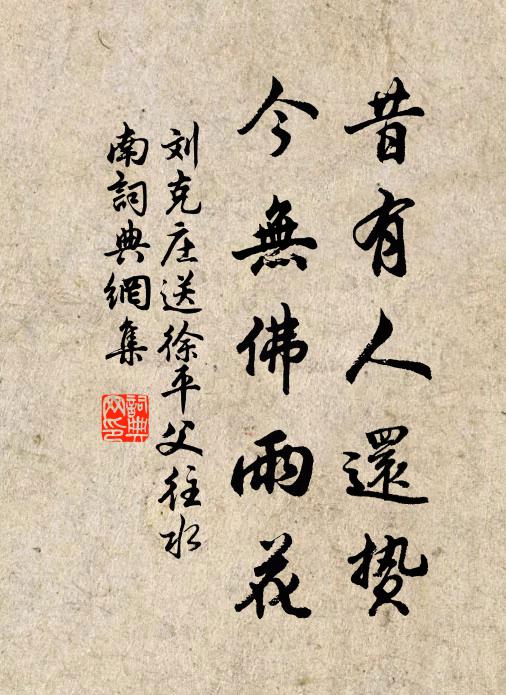 昔有人還贽
今無佛雨花
刘克庄送徐平父往水
南詞典網集
詞典
网印